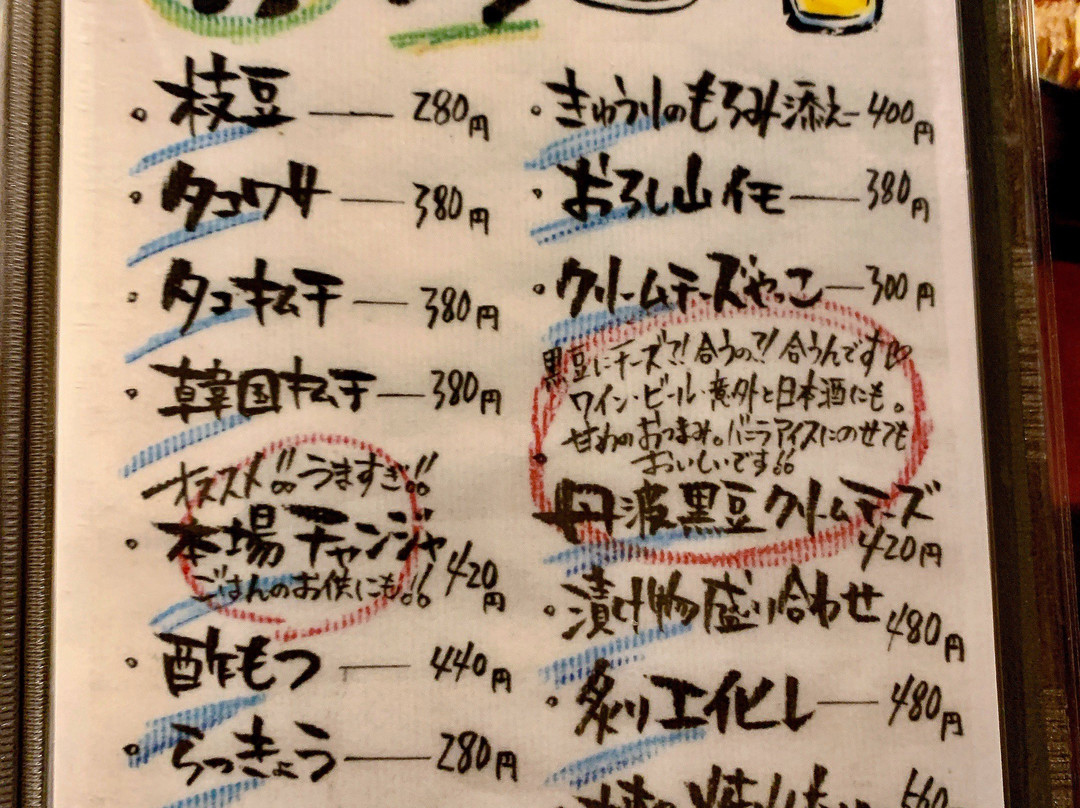 枝豆 280円
タコワサ 380円
タコキムチ 380円
韓国キムチ 380円
オススメ!! うますぎ!!
本場チャンジャ 420円
ごはんのお供にも!!
酢もつ 440円
らっきょう 280円
きゅうりのもろみ添え 400円
おろし山イモ 380円
クリームチーズやっこ 300円
黒豆にチーズ?! 合うの?! 合うんです♡
ワイン・ビール・意外と日本酒にも。
甘めのおつまみ。バニラアイスにのせても
おいしいです!!
丹波黒豆クリームチーズ
420円
漬け物盛り合わせ 480円
炙りエイヒレ 480円